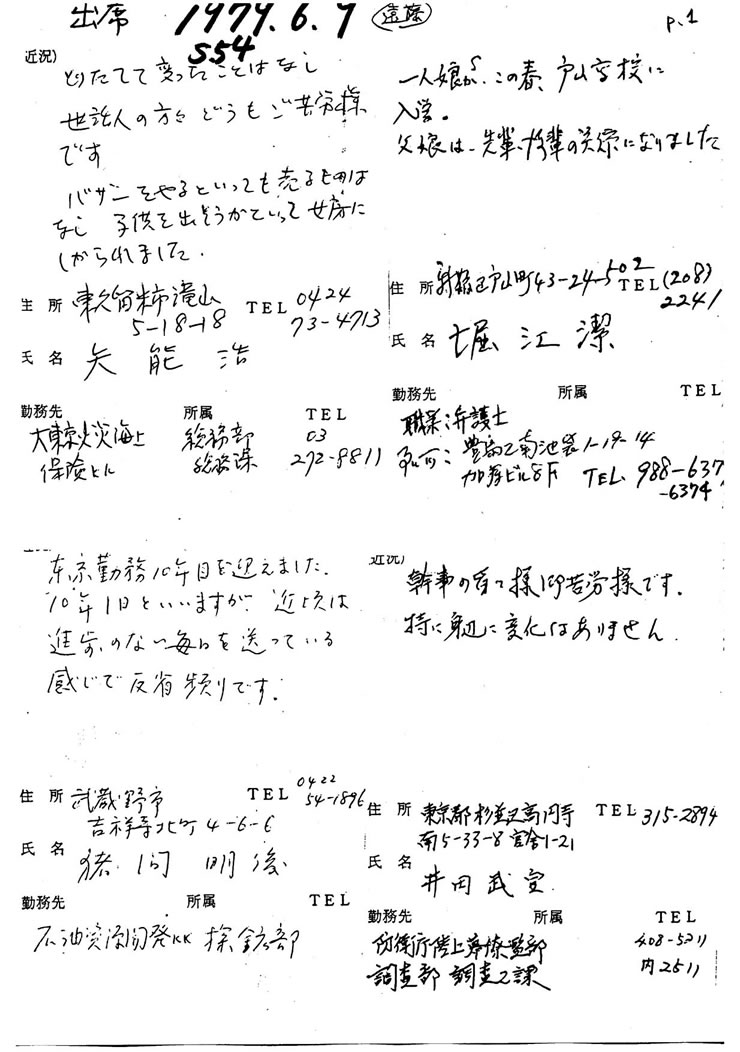 出席 1979.6.7 遠藤 P.1
S54
近況)
とりたてて変ったことはなし
世話人の方々どうもご苦労様
です
バザーをやるといっても売るものは
なし 子供を出そうかといって女房に
しかられました.
住所 東久留米市滝山 TEL 0424
5-18-18 73-4713
氏名 矢能 浩
勤務先 所属 TEL
大東京火災海上 総務部 03
保険ビル 総務課 272-8811
一人娘が、この春、戸山高校に
入学。
父娘は、先輩、後輩の関係になりました
住所 新宿区戸山町43-24-502 TEL (208)
2241
氏名 堀江 潔
勤務先 所属 TEL
職業 弁護士
豊島区南池袋1-19-14
ビル8F TEL. 988-637
-6374
東京勤務10年目を迎えました.
10年1日といいますが 近頃は
進歩のない毎日を送っている
感じで反省頻りです.
住所 武蔵野市 TEL 0422
54-1896
吉祥寺北町 4-6-6
氏名 猪間 明俊
勤務先 所属 TEL
石油資源開発KK 探鉱部
近況)
幹事の皆々様御苦労様です.
特に身辺に変化はありません.
住所 東京都杉並区高円寺 TEL 315-2894
南5-33-8 官舎1-21
氏名 井田 武宣
勤務先 所属 TEL
防衛庁陸上幕僚監部 408-5211
調査部 調査2課 内2511